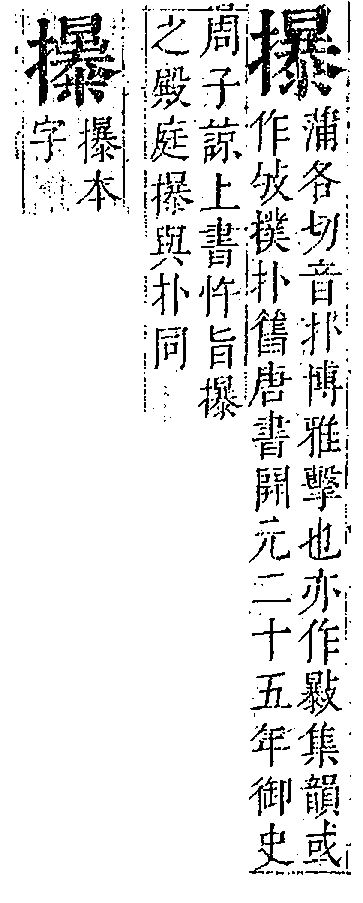 㩧
蒲各切音㧊博雅擊也亦作㪔集韻或
作㩧撲扑舊唐書開元二十五年御史
周子諒上書忤旨㩧
之殿庭㩧與扑同
㩧本
字